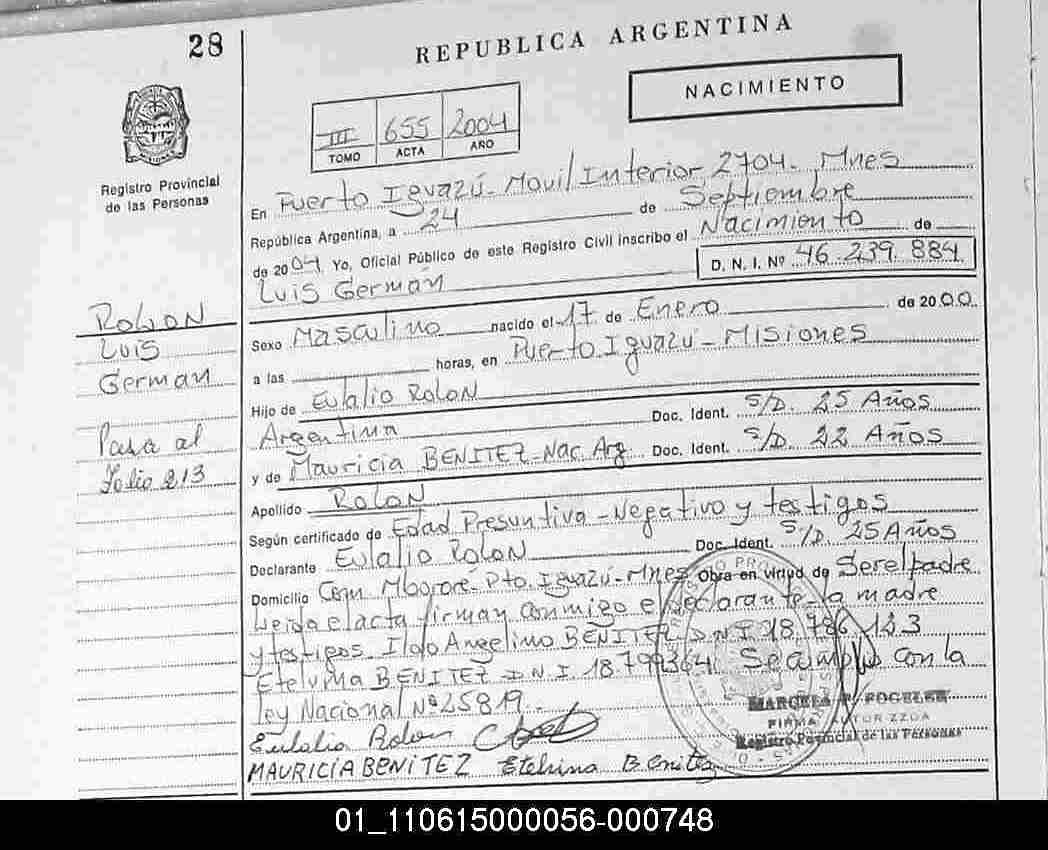 28
REPUBLICA ARGENTINA
NACIMIENTO
III 655 2004
TOMO ACTA AÑO
Registro Provincial
de las Personas
En Puerto Iguazú - Movil Interior 2704 - Mnes
República Argentina, a 24 de Septiembre
de 2004 Yo, Oficial Público de este Registro Civil inscribo el Nacimiento de
Luis Germán D. N. I. Nº 46.239.884
Sexo Masculino nacido el 17 de Enero de 2000
a las horas, en Puerto Iguazú - Misiones
Hijo de Eulalio Rolon
Argentina Doc. Ident. S/D. 25 Años
y de Mauricia BENITEZ - Nac. Arg. Doc. Ident. S/D. 22 Años
Apellido ROLON
Según certificado de Edad Presuntiva - Negativo y testigos
Declarante Eulalio Rolon Doc. Ident. S/D. 25 Años
Domicilio Com Mbororé - Pto. Iguazú - Mnes Obra en virtud de Ser el padre
Leida el acta firman conmigo el declarante la madre
y testigos Angelino BENITEZ D.N.I 18.786.123
Etelvina BENITEZ D.N.I. 18.799364 Se cumplio con la
ley Nacional Nº 25819
Eulalio Rolon
MAURICIA BENITEZ Etelvina Benitez
ROLON
Luis
German
Pasa al
Folio 213
MARCELA
FIRMA
Registro Provincial de las Personas
01_110615000056-000748